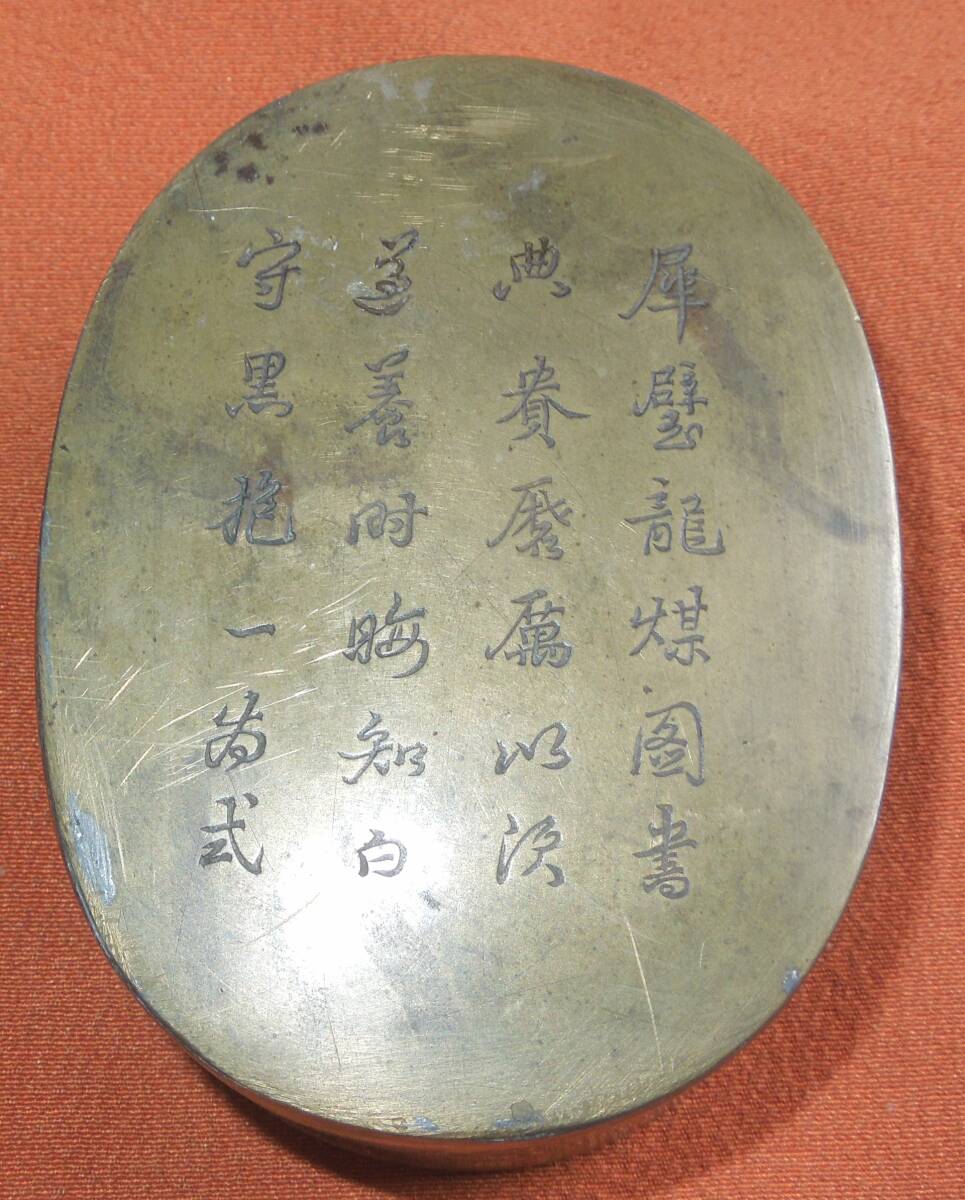 犀璧龍煤圖書
典貴磨厲以須
遵養时晦知白
守黑抱一為式